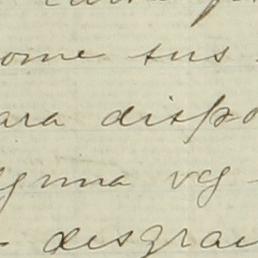 ome sus
ara dispo
lguna vez
desgrac